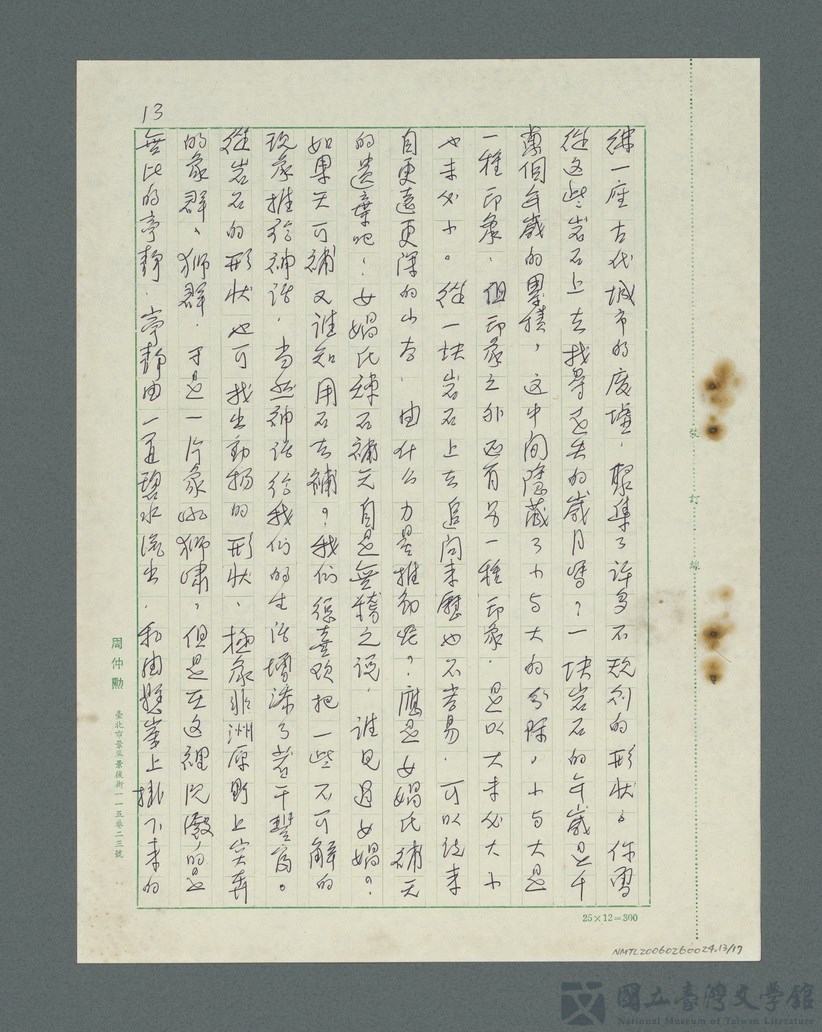 13
一座古代城市的廢墟，聚集了許多不規則的形狀。你曾
從這些岩石上去找尋遺失的歲月嗎？一塊岩石的年歲是千
萬個年歲的累積，這中間隱藏了小与大的分際。小与大是
一種印象，但印象之外还有另一種印象，是以大未必大小
也未必小。從一块岩石上去追问来歷也不容易，可以说来
自更遠更深的山谷，由什么力量推動呢？應是女媧氏補天
的遺棄吧！女媧氏煉石補天自是無稽之說，誰見過女媧？
如果天可補又誰知用石去補？我们很喜欢把一些不可解的
现象推给神話，当然神話给我们的生活增添了若干豐富。
從岩石的形狀也可找出動物的形狀，極象非洲原野上突奔
的象群、狮群，于是一片象吼狮嘯，但是在这裡沉澱的是
無比的亭静，亭静由一道碧水流出，和由懸崖上掛下来的
周仲勲
臺北市景美景後街一一五巷二三號
裝訂線
25×12=300
NMTL20060260024.13/17
國立臺灣文學館
National Museum of Taiwan Literature